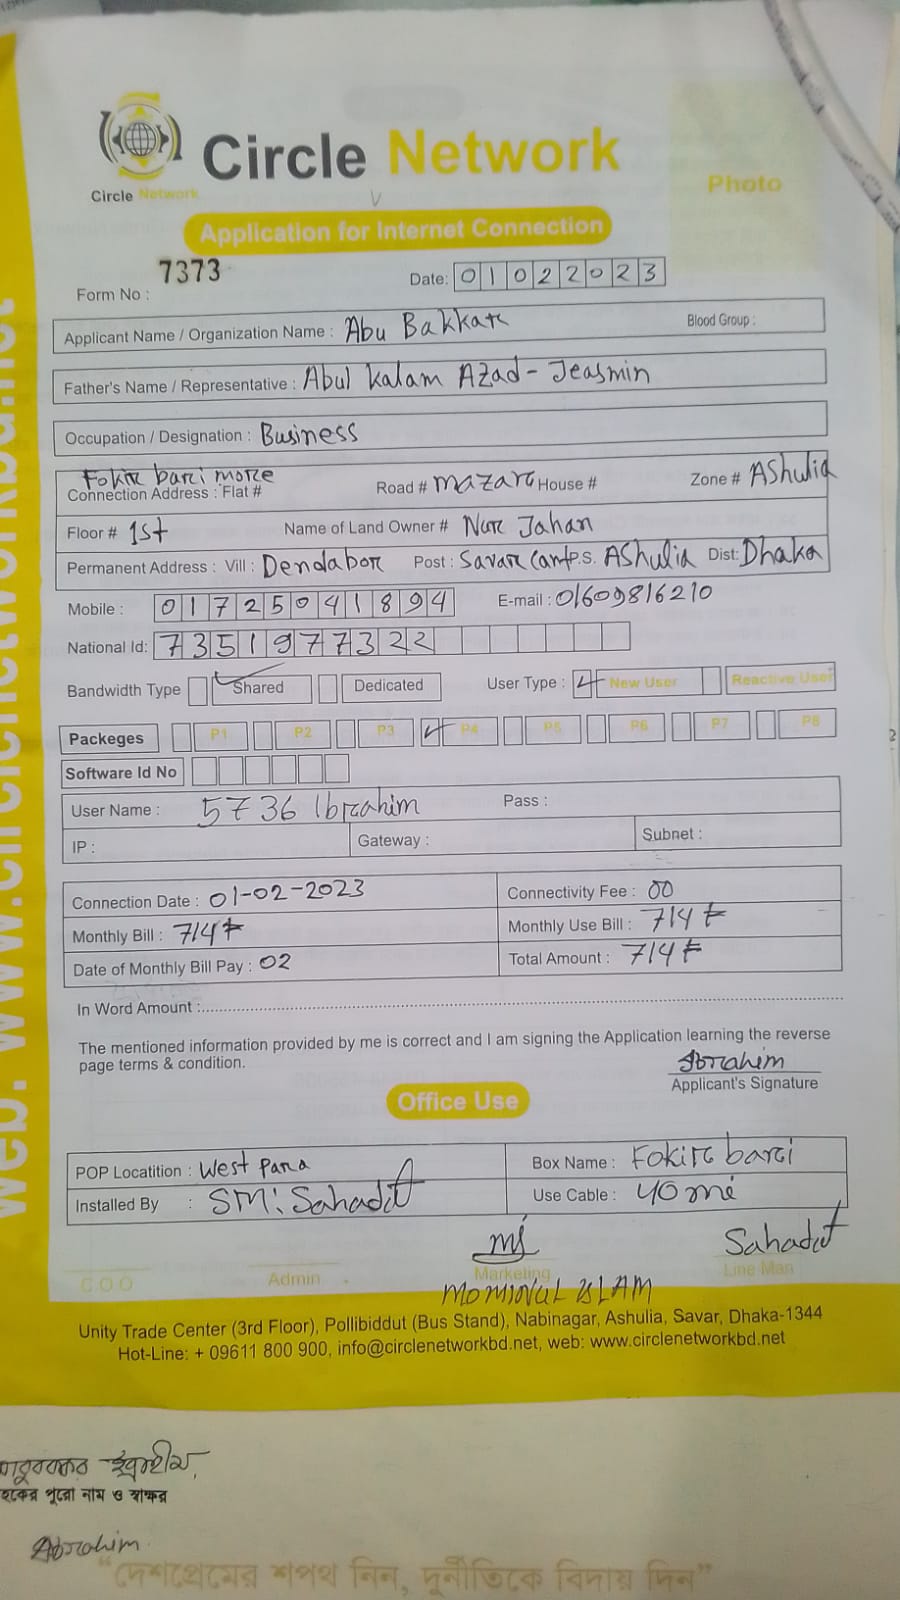 Circle Network
Circle Network
Photo
Application for Internet Connection
Form No : 7373
Date: 01022023
Applicant Name / Organization Name : Abu Bakkar
Blood Group :
Father's Name / Representative : Abul Kalam Azad - Jeasmin
Occupation / Designation : Business
Fokir bari more
Connection Address : Flat # Road # mazar House # Zone # AShulia
Floor # 1st Name of Land Owner # Nur Jahan
Permanent Address : Vill : Dendabor Post : Savar Cant P.S. AShulia Dist: Dhaka
Mobile : 01725041894 E-mail : 01609816210
National Id: 7351977322
Bandwidth Type Shared Dedicated User Type : New User Reactive User
Packeges P1 P2 P3 P4 P5 P6 P7 P8
Software Id No
User Name : 5736 Ibrahim Pass :
IP : Gateway : Subnet :
Connection Date : 01-02-2023 Connectivity Fee : 00
Monthly Bill : 714 Monthly Use Bill : 714
Date of Monthly Bill Pay : 02 Total Amount : 714
In Word Amount :
The mentioned information provided by me is correct and I am signing the Application learning the reverse
page terms & condition.
Ibrahim
Applicant's Signature
Office Use
POP Locatition : West Para Box Name : Fokir bari
Installed By : SM: Sahadat Use Cable : 40 mi
Sahadat
C O O Admin Marketing Line Man
MOMINUL ISLAM
Unity Trade Center (3rd Floor), Pollibiddut (Bus Stand), Nabinagar, Ashulia, Savar, Dhaka-1344
Hot-Line: + 09611 800 900, info@circlenetworkbd.net, web: www.circlenetworkbd.net
web: www.circlenetworkbd.net
পুরো নাম ও স্বাক্ষর
Ibrahim
“দেশপ্রেমের শপথ নিন, দুর্নীতিকে বিদায় দিন”